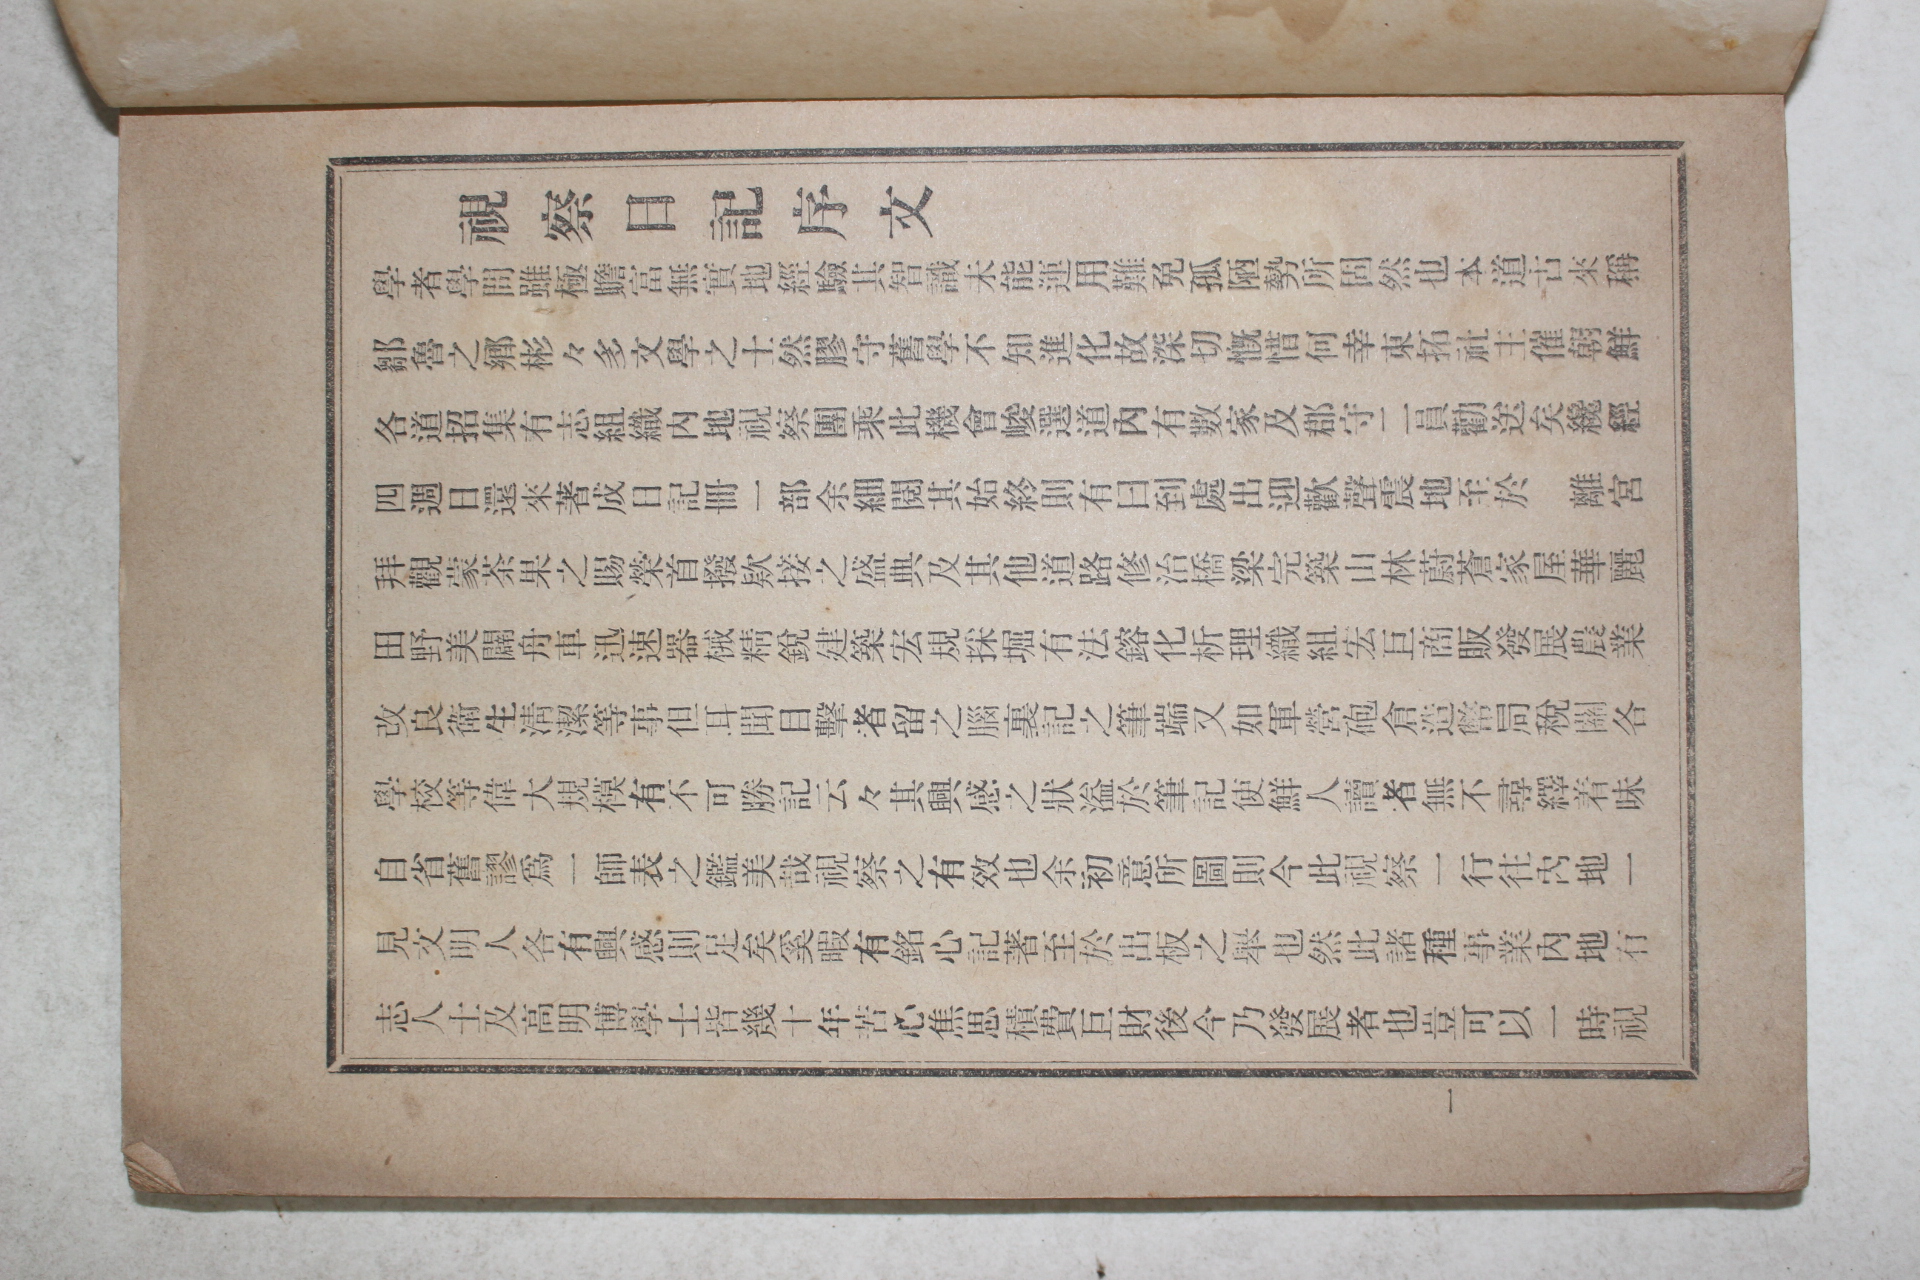 視察日記序文
學者學問雖極贍富無實地經驗其智識未能運用難免孤陋勢所固然也本道古來稱
鄒魯之鄉彬々多文學之士然膠守舊學不知進化故深切慨惜何幸東拓社主催朝鮮
各道招集有志組織內地視察團乘此機會峻選道內有數家及郡守一二員勸送矣纔經
四週日還來著成日記冊一部余細閱其始終則有曰到處出迎歡聲震地至於　離宮
拜觀蒙茶果之賜榮首撥欵接之盛典及其他道路修治橋梁完築山林蔚蒼家屋華麗
田野美闢舟車迅速器械精銳建築宏規採堀有法鎔化析理織組宏巨商販發展農業
改良衛生淸潔等事但耳聞目擊者留之腦裏記之筆端又如軍營砲倉造幣局稅關各
學校等偉大規模有不可勝記云々其興感之狀溢於筆記使鮮人讀者無不尋繹着味
自省舊謬爲一師表之鑑美哉視察之有效也余初意所圖則今此視察一行往內地一
見文明人各有興感則足矣奚暇有銘心記著至於出板之舉也然此諸種事業內地有
志人士及高明博學士皆幾十年苦心焦思積費巨財後今乃發展者也豈可以一時視
一